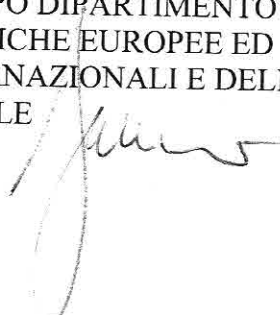 DIPARTIMENTO
ICHE EUROPEE ED
RNAZIONALI E DELL
LE